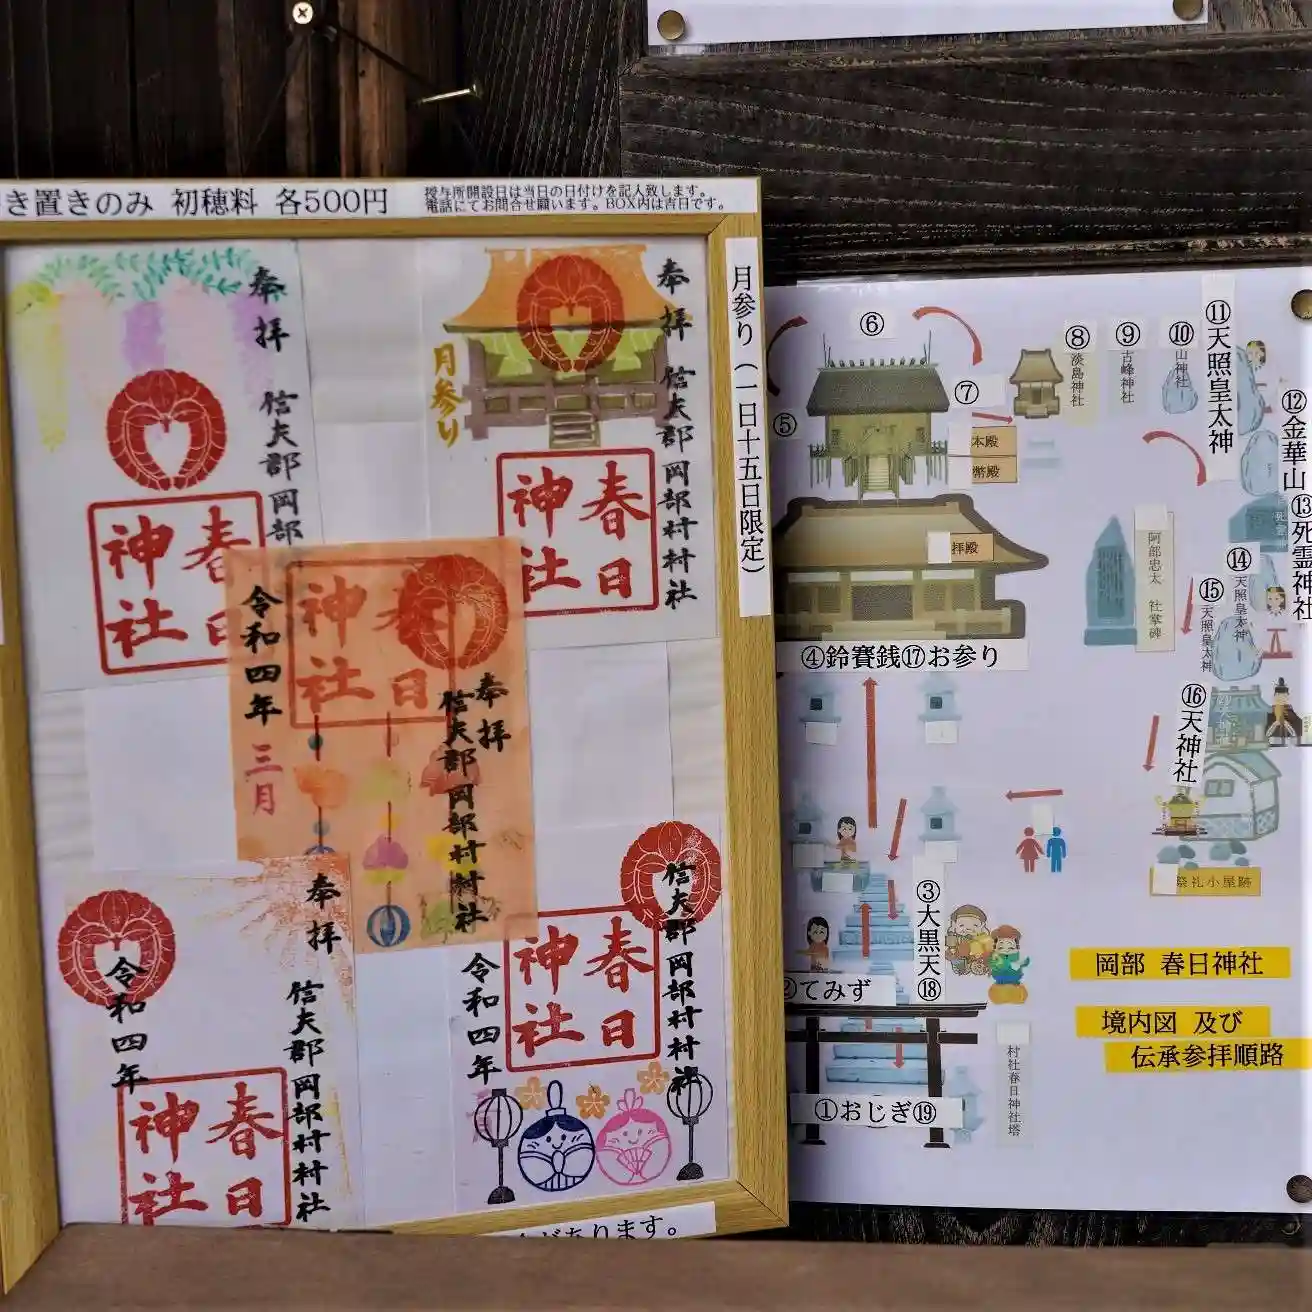 き置きのみ 初穂料 各500円
授与所開設日は当日の日付けを記入致します。
電話にてお問合せ願います。BOX内は吉日です。
月参り(一日十五日限定)
奉拝
信夫郡岡部
春日神社
奉拝
信夫郡岡部村村社
月参り
春日神社
令和四年
三月
奉拝
信夫郡岡部村村社
春日神社
奉拝
信夫郡岡部村村社
令和四年
春日神社
信夫郡岡部村村社
令和四年
春日神社
があります。
⑤
⑥
⑦
⑧
淡島神社
⑨
古峰神社
⑩
山神社
⑪天照皇太神
⑫金華山
⑬死霊神社
⑭
天照皇太神
⑮
天照皇太神
⑯天神社
本殿
幣殿
拝殿
阿部忠太 社掌碑
④鈴賽銭⑰お参り
祭礼小屋跡
③大黒天⑱
②てみず
①おじぎ⑲
村社春日神社塔
岡部 春日神社
境内図 及び
伝承参拝順路